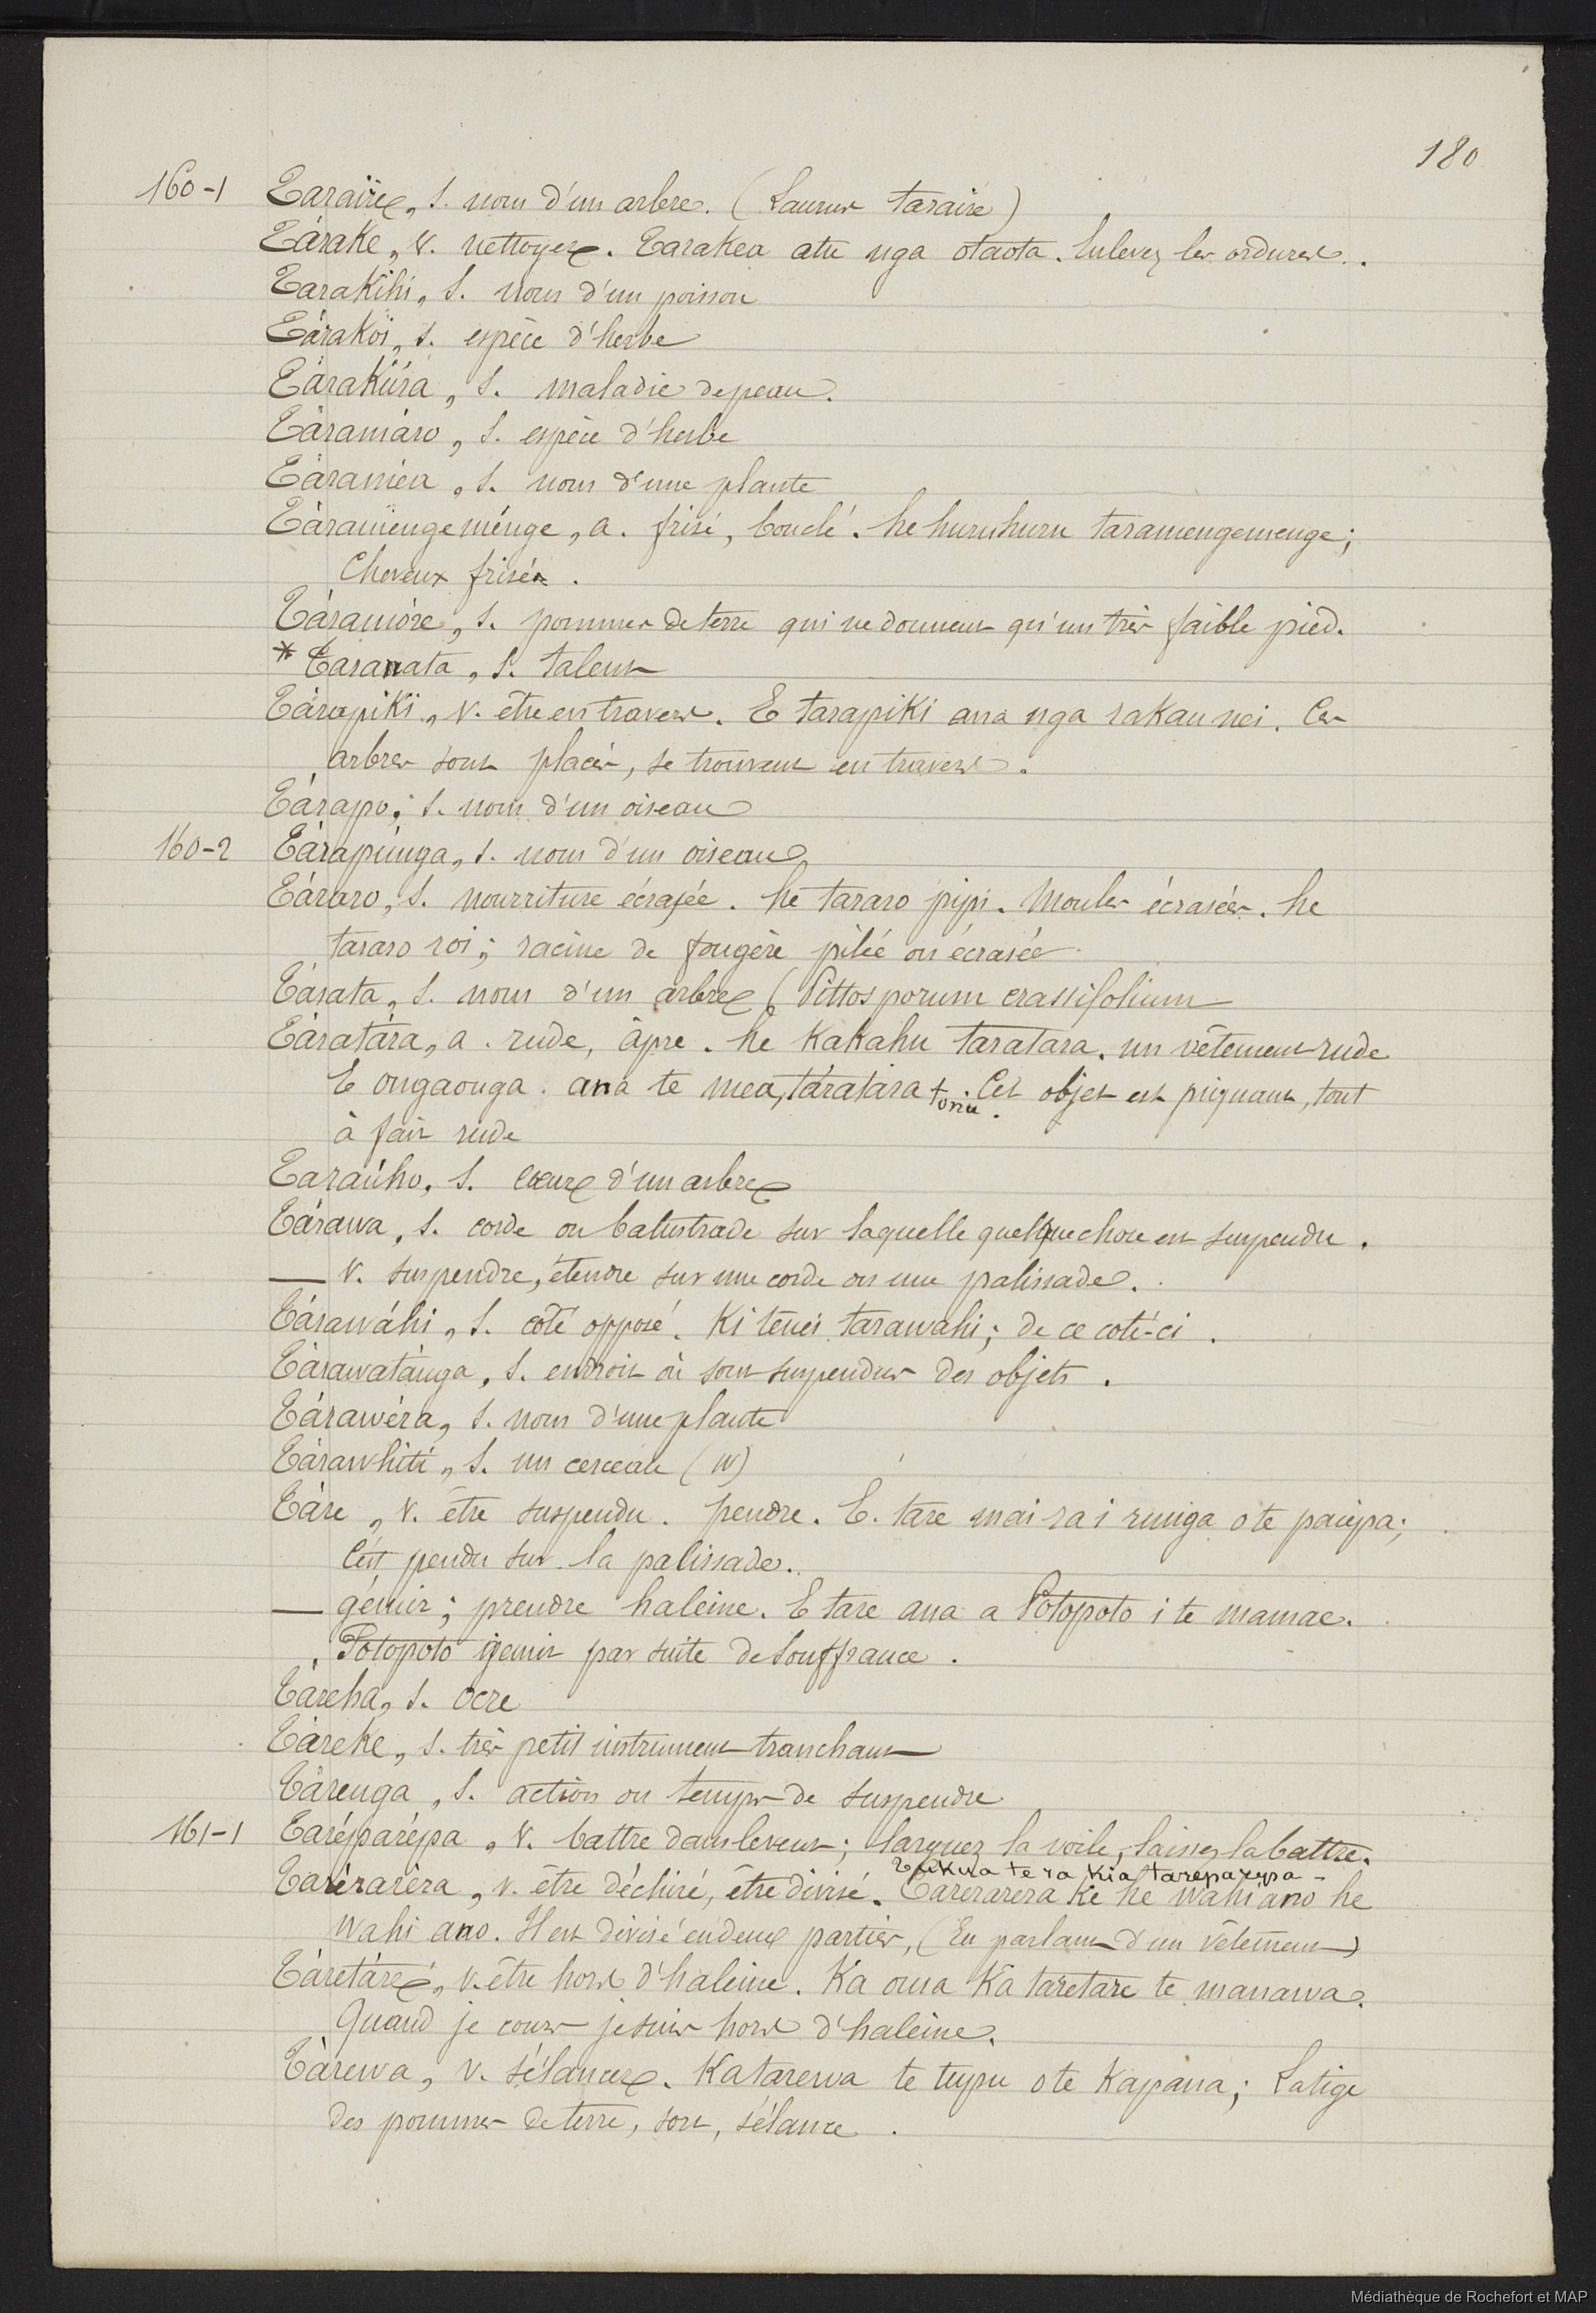 180
160-1 Taraïre, s. nom d'un arbre. (Laurus taraire)
Tárake, v. nettoyer. Tarakea atu nga otaota. Enlevez les ordures.
Tarakihi, s. nom d'un poisson
Tárakoï, s. espèce d'herbe
Tárakúra, s. maladie de peau.
Táramáro, s. espèce d'herbe
Táraméa, s. nom d'une plante
Táramengeménge, a. frisé, bouclé. he huruhuru taramengemenge;
Cheveux frisés.
Táramóre, s. pommes de terre qui ne donnent qu'un très faible pied.
* Taranata, s. talent
Tárapiki, v. être en travers. E tarapiki ana nga rakau nei. Ces
arbres sont placés, se trouvent en travers.
Tárapo, s. nom d'un oiseau
160-2 Tárapúnga, s. nom d'un oiseau
Táraro, s. nourriture écrasée. he tararo pipi. Moules écrasées. he
tararo roi; racine de fougère pilée ou écrasée
Tárata, s. nom d'un arbre (Pittosporum crassifolium
Táratára, a. rude, âpre. he kakahu taratara. un vêtement rude
E ongaonga ana te mea, táratára tonu. Cet objet est piquant, tout
à fait rude
Taraúho, s. coeur d'un arbre
Tárawa, s. corde ou balustrade sur laquelle quelque chose est suspendu.
— v. suspendre, étendre sur une corde ou une palissade.
Tárawáhi, s. coté opposé. Ki tenei tarawahi; de ce coté-ci.
Tárawatánga, s. endroit où sont suspendus des objets.
Tárawéra, s. nom d'une plante
Tárawhiti, s. un cerceau (W)
Táre, v. être suspendu. pendre. E. tare mai ra i runga o te paiepa;
C'est pendu sur la palissade.
— gémir; prendre haleine. E tare ana a Potopoto i te mamae.
Potopoto gémit par suite de souffrance.
Táreha, s. ocre
Táreke, s. très petit instrument tranchant
Tárenga, s. action ou temps de suspendre
161-1 Taréparépa, v. battre dans le vent; larguez la voile, laissez la battre.
Tukua te ra kia tareparepa -
Tarérarèra, v. être déchiré, être divisé. Tarerarera ke he wahi ano he
wahi ano. Il est divisé en deux parties, (En parlant d'un vêtement)
Táretáre, v. être hors d'haleine. Ka oma ka taretare te manawa.
Quand je cours je suis hors d'haleine.
Tárewa, v. s'élancer. Ka tarewa te tupu o te Kapana; La tige
des pommes de terre, sort, s'élance.
Médiathèque de Rochefort et MAP